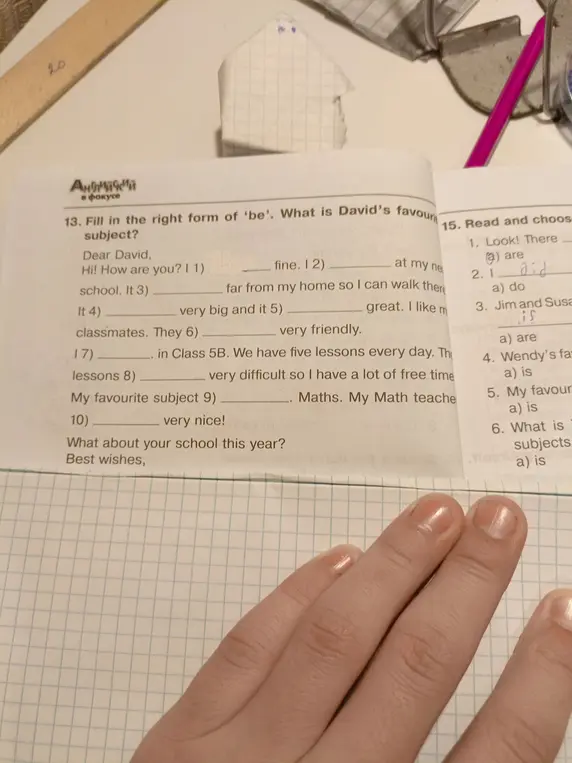 20
Английский
в фокусе
13. Fill in the right form of 'be'. What is David's
subject?
Dear David,
Hi! How are you? I 1) ____ fine. I 2) ________ at my
school. It 3) _________ far from my home so I can walk
It 4) _________ very big and it 5) _________ great. I like
classmates. They 6) _________ very friendly.
I 7) _______. in Class 5B. We have five lessons every day.
lessons 8) ________ very difficult so I have a lot of free time
My favourite subject 9) _________. Maths. My Math
10) _________ very nice!
What about your school this year?
Best wishes,
15. Read and
1. Look! There
a) are
2. I did
a) do
3. Jim and
is
a) are
4. Wendy's
a) is
5. My
a) is
6. What is
subjects
a) is